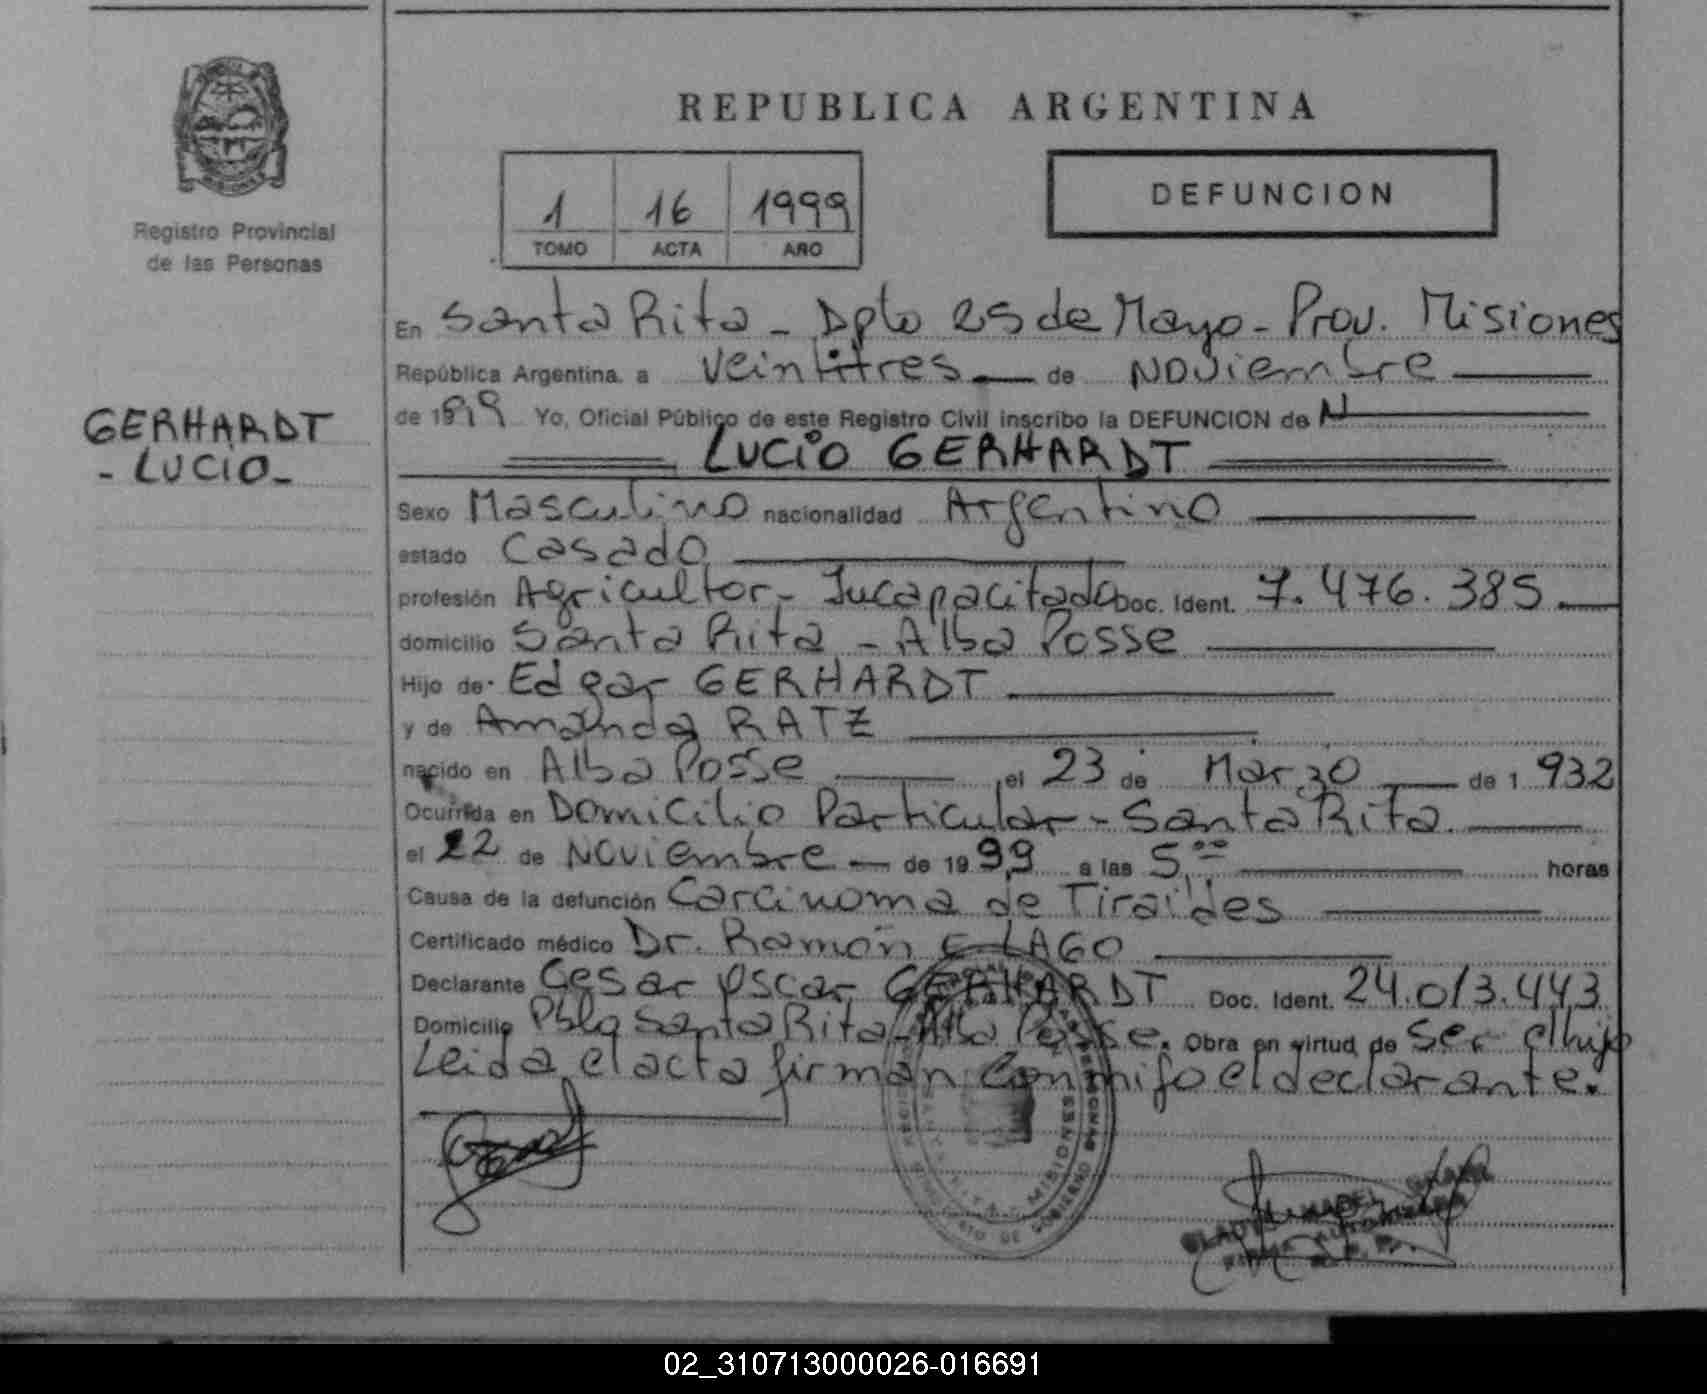 REPUBLICA ARGENTINA
MISIONES
Registro Provincial
de las Personas
1 16 1999
TOMO ACTA AÑO
DEFUNCION
GERHARDT
- LUCIO -
En Santa Rita - Dpto 25 de Mayo - Prov. Misiones
República Argentina, a veintitres de Noviembre
de 1999 Yo, Oficial Público de este Registro Civil inscribo la DEFUNCION de
LUCIO GERHARDT
Sexo Masculino nacionalidad Argentino
estado Casado
profesión Agricultor - Incapacitado Doc. Ident. 7.476.385
domicilio Santa Rita - Alba Posse
Hijo de Edgar GERHARDT
y de Amanda RATZ
nacido en Alba Posse el 23 de Marzo de 1.932
Ocurrida en Domicilio Particular - Santa Rita
el 22 de Noviembre de 1999 a las 5,00 horas
Causa de la defunción Carcinoma de Tiraides
Certificado médico Dr. Ramón E LAGO
Declarante Cesar Oscar GERHARDT Doc. Ident. 24.013.443
Domicilio Pblo Santa Rita - Alba Posse. Obra en virtud de ser el hijo
Leida el acta firman conmigo el declarante.
MISIONES
02_310713000026-016691